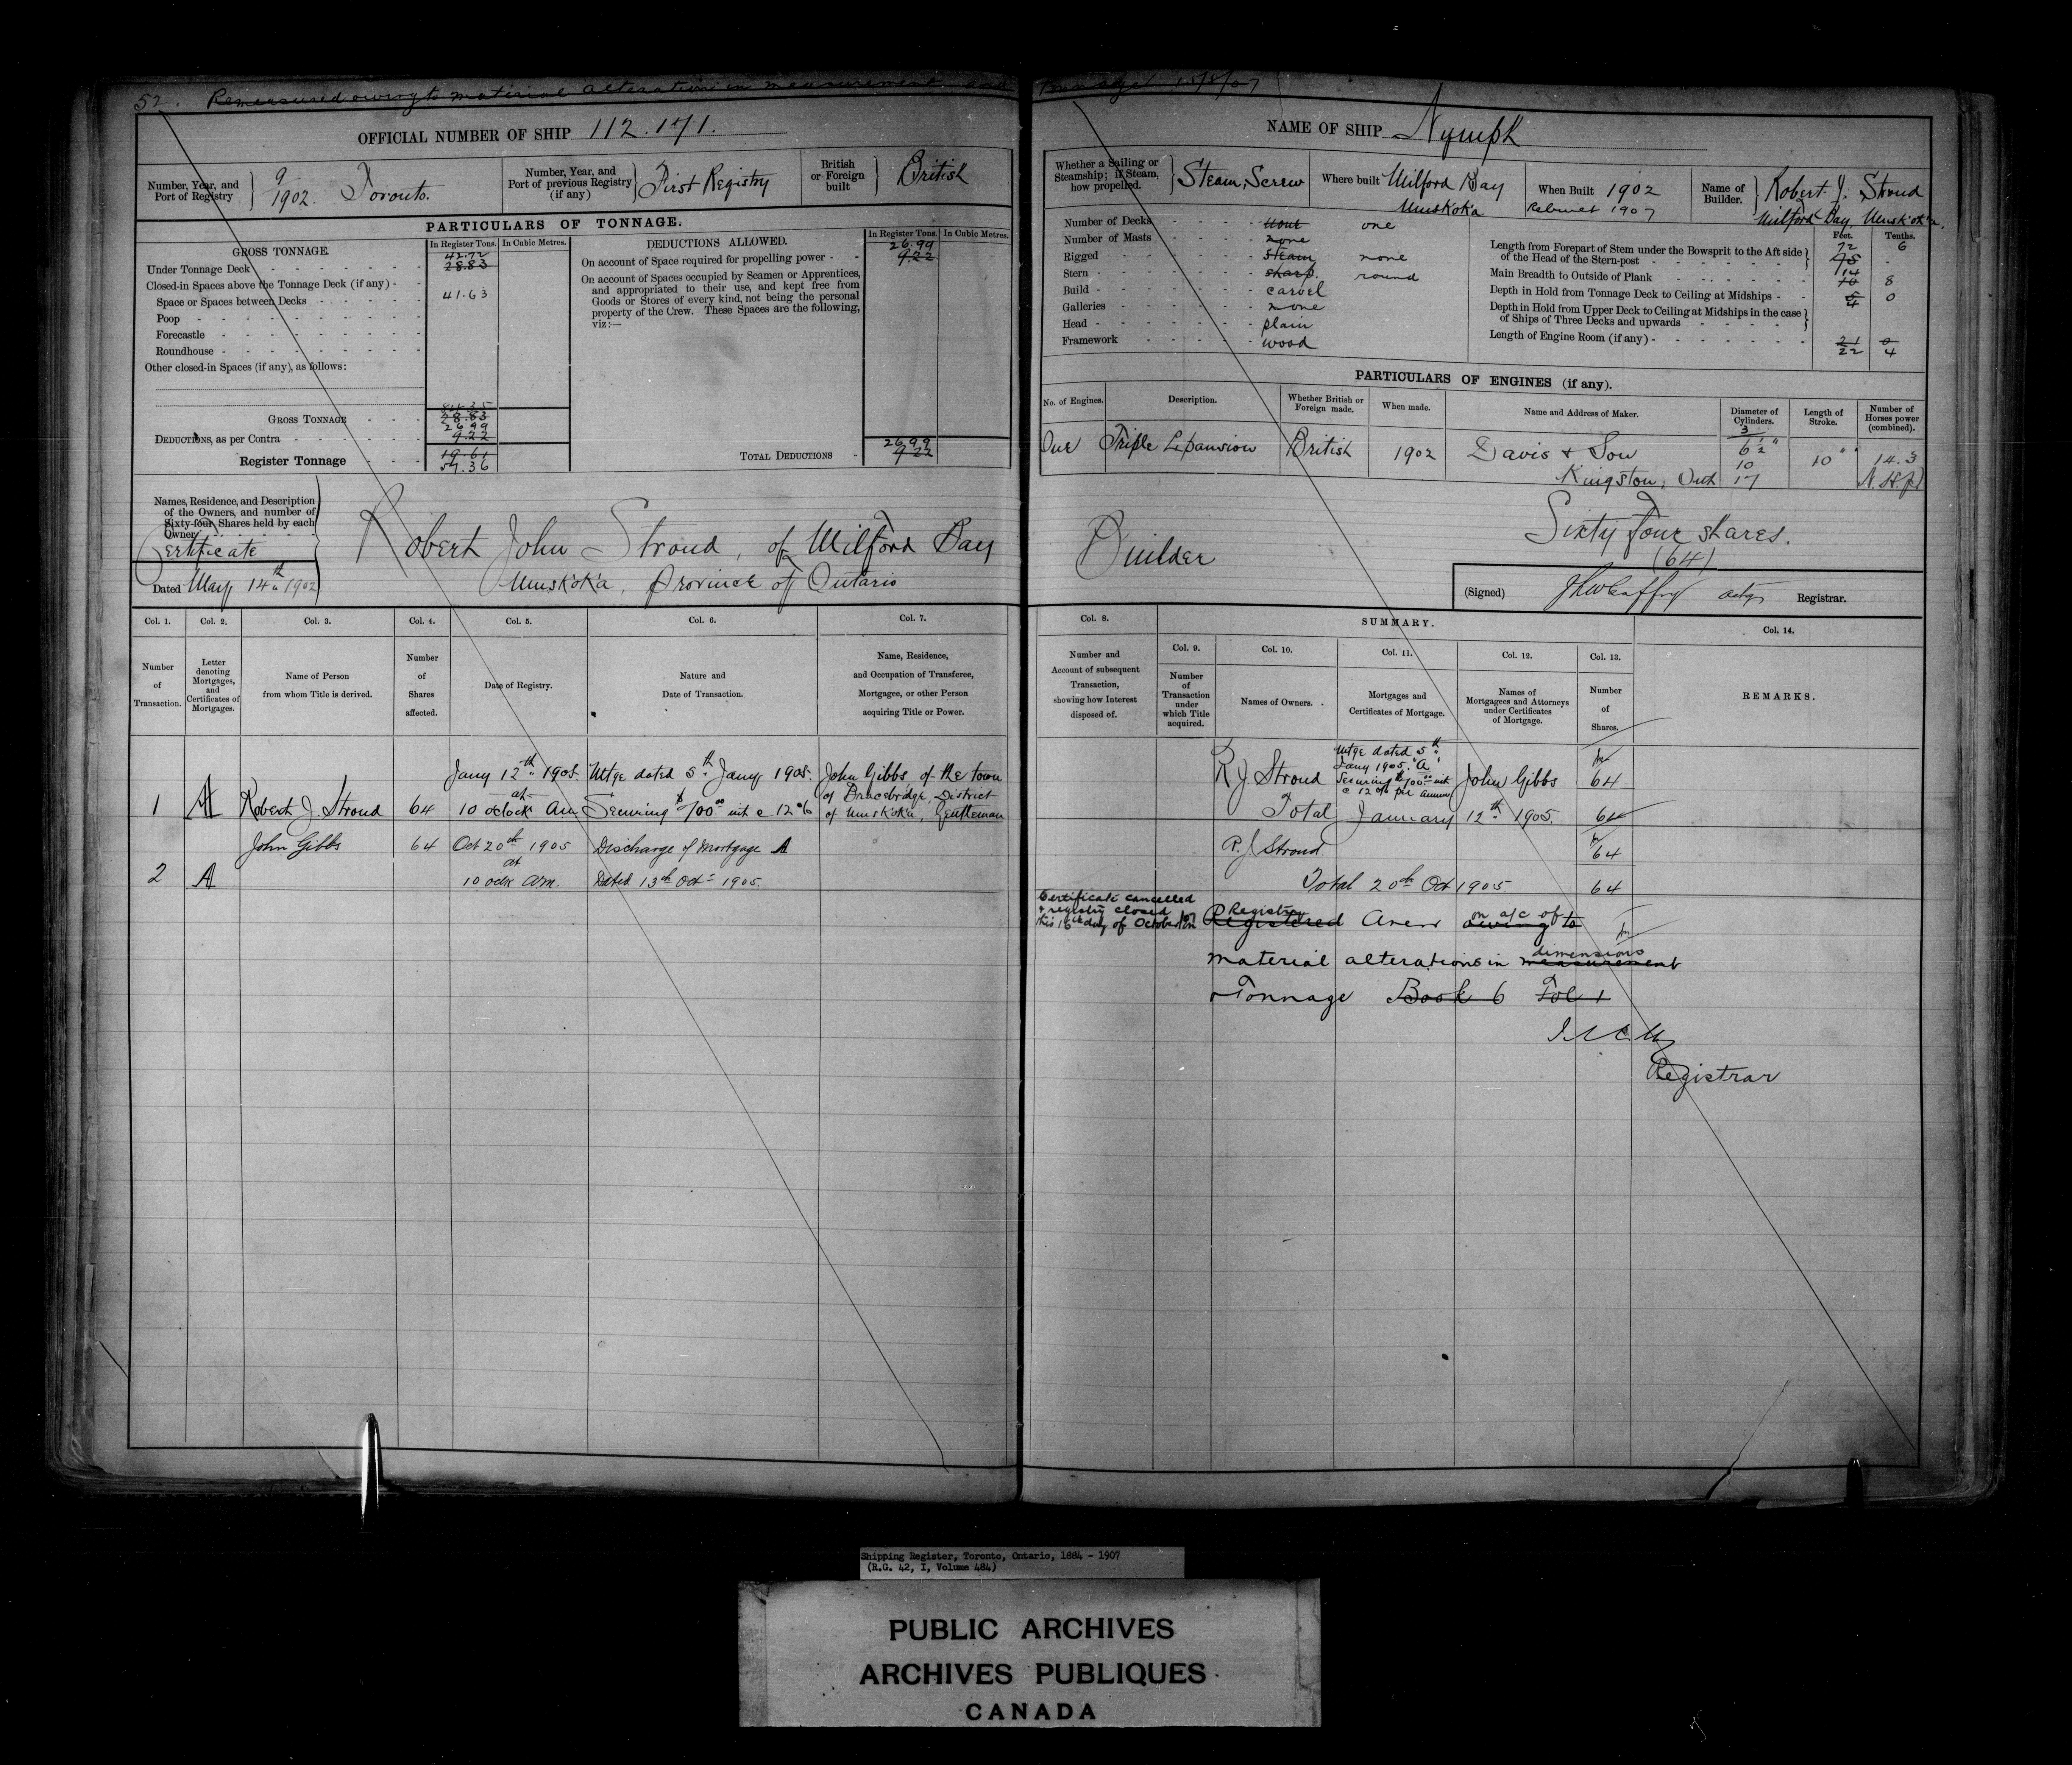 52. Remeasured owing to material alteration in measurement and Tonnage 15/8/07
OFFICIAL NUMBER OF SHIP 112.171.
Number, Year, and Port of Registry } 9/1902. Toronto.
Number, Year, and Port of previous Registry (if any) } First Registry
British or Foreign built } British
PARTICULARS OF TONNAGE.
GROSS TONNAGE.
In Register Tons. In Cubic Metres.
Under Tonnage Deck 42.72 28.83
Closed-in Spaces above the Tonnage Deck (if any)
Space or Spaces between Decks 41.63
Poop
Forecastle
Roundhouse
Other closed-in Spaces (if any), as follows:
GROSS TONNAGE 84.35 28.83
DEDUCTIONS, as per Contra 26.99 9.22
Register Tonnage 19.61 57.36
DEDUCTIONS ALLOWED.
In Register Tons. In Cubic Metres.
On account of Space required for propelling power 26.99 9.22
On account of Spaces occupied by Seamen or Apprentices, and appropriated to their use, and kept free from Goods or Stores of every kind, not being the personal property of the Crew. These Spaces are the following, viz:—
TOTAL DEDUCTIONS 26.99 9.22
Names, Residence, and Description of the Owners, and number of Sixty-four Shares held by each Owner
Certificate
Dated May 14th 1902
Robert John Stroud, of Milford Bay
Muskoka, Province of Ontario
NAME OF SHIP Nymph
Whether a Sailing or Steamship; if Steam, how propelled. } Steam, Screw
Where built Milford Bay Muskoka
When Built 1902
Rebuilt 1907
Name of Builder. } Robert J. Stroud
Milford Bay, Muskoka.
Number of Decks none one
Number of Masts none
Rigged steam none
Stern sharp. round
Build carvel
Galleries none
Head plain
Framework wood
Feet. Tenths.
Length from Forepart of Stem under the Bowsprit to the Aft side of the Head of the Stern-post } 72 6
Main Breadth to Outside of Plank 14 8
Depth in Hold from Tonnage Deck to Ceiling at Midships 5 4 0
Depth in Hold from Upper Deck to Ceiling at Midships in the case of Ships of Three Decks and upwards }
Length of Engine Room (if any) 21 0
22 4
PARTICULARS OF ENGINES (if any).
No. of Engines. Description. Whether British or Foreign made. When made. Name and Address of Maker. Diameter of Cylinders. Length of Stroke. Number of Horses power (combined).
One Triple Expansion British 1902 Davis & Son Kingston, Ont 3 6 1/2" 10 17 10" 14.3 N.H.P.
Builder
Sixty four shares.
(64)
(Signed) actg Registrar.
Col. 1. Col. 2. Col. 3. Col. 4. Col. 5. Col. 6. Col. 7.
Number of Transaction.
Letter denoting Mortgages, and Certificates of Mortgages.
Name of Person from whom Title is derived.
Number of Shares affected.
Date of Registry.
Nature and Date of Transaction.
Name, Residence, and Occupation of Transferee, Mortgagee, or other Person acquiring Title or Power.
1 A Robert J. Stroud 64 Jany 12th 1905. at 10 oclock Am
Mtge dated 5th Jany 1905. Securing $700.00 int @ 12%
John Gibbs of the town of Bracebridge, District of Muskoka, Gentleman
2 A John Gibbs 64 Oct 20th 1905 at 10 oclk Am.
Discharge of Mortgage A
Dated 13th Oct 1905.
Col. 8. SUMMARY. Col. 14.
Col. 9. Col. 10. Col. 11. Col. 12. Col. 13.
Number and Account of subsequent Transaction, showing how Interest disposed of.
Number of Transaction under which Title acquired.
Names of Owners.
Mortgages and Certificates of Mortgage.
Names of Mortgagees and Attorneys under Certificates of Mortgage.
Number of Shares.
REMARKS.
R J. Stroud
Mtge dated 5th Jany 1905. "A" Securing $700.00 int @ 12% per Annum
John Gibbs 64
Total January 12th 1905. 64
R. J Stroud. 64
Total 20th Oct 1905 64
Certificate cancelled
& registry closed
this 16th day of October 1907
Registered Registry Anew owing to on a/c of
material alterations in measurement dimensions
& Tonnage Book 6 Fol 1
Registrar
Shipping Register, Toronto, Ontario, 1884 - 1907
(R.G. 42, I, Volume 484)
PUBLIC ARCHIVES
ARCHIVES PUBLIQUES
CANADA